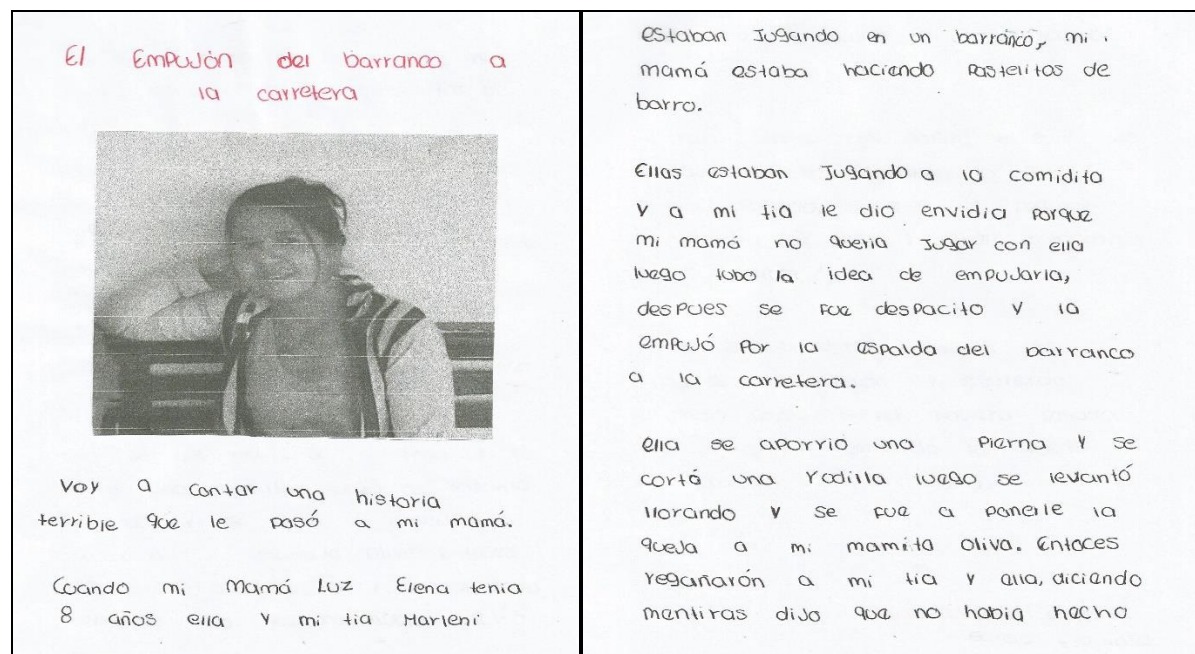 El Empujón del barranco a
la carretera
Voy a contar una historia
terrible que le pasó a mi mamá.
Cuando mi Mamá Luz Elena tenia
8 años ella y mi tia Marleni
estaban Jugando en un barranco, mi
mamá estaba haciendo Pastelitos de
barro.
Ellas estaban Jugando a la comidita
y a mi tia le dio envidia Porque
mi mamá no queria Jugar con ella
luego tubo la idea de empujarla,
despues se fue despacito y la
empujó por la espalda del barranco
a la carretera.
ella se aporrió una Pierna y se
cortó una rodilla luego se levantó
llorando y se fue a ponerle la
queja a mi mamita Oliva. Entoces
regañarón a mi tia y ella, diciendo
mentiras dijo que no habia hecho